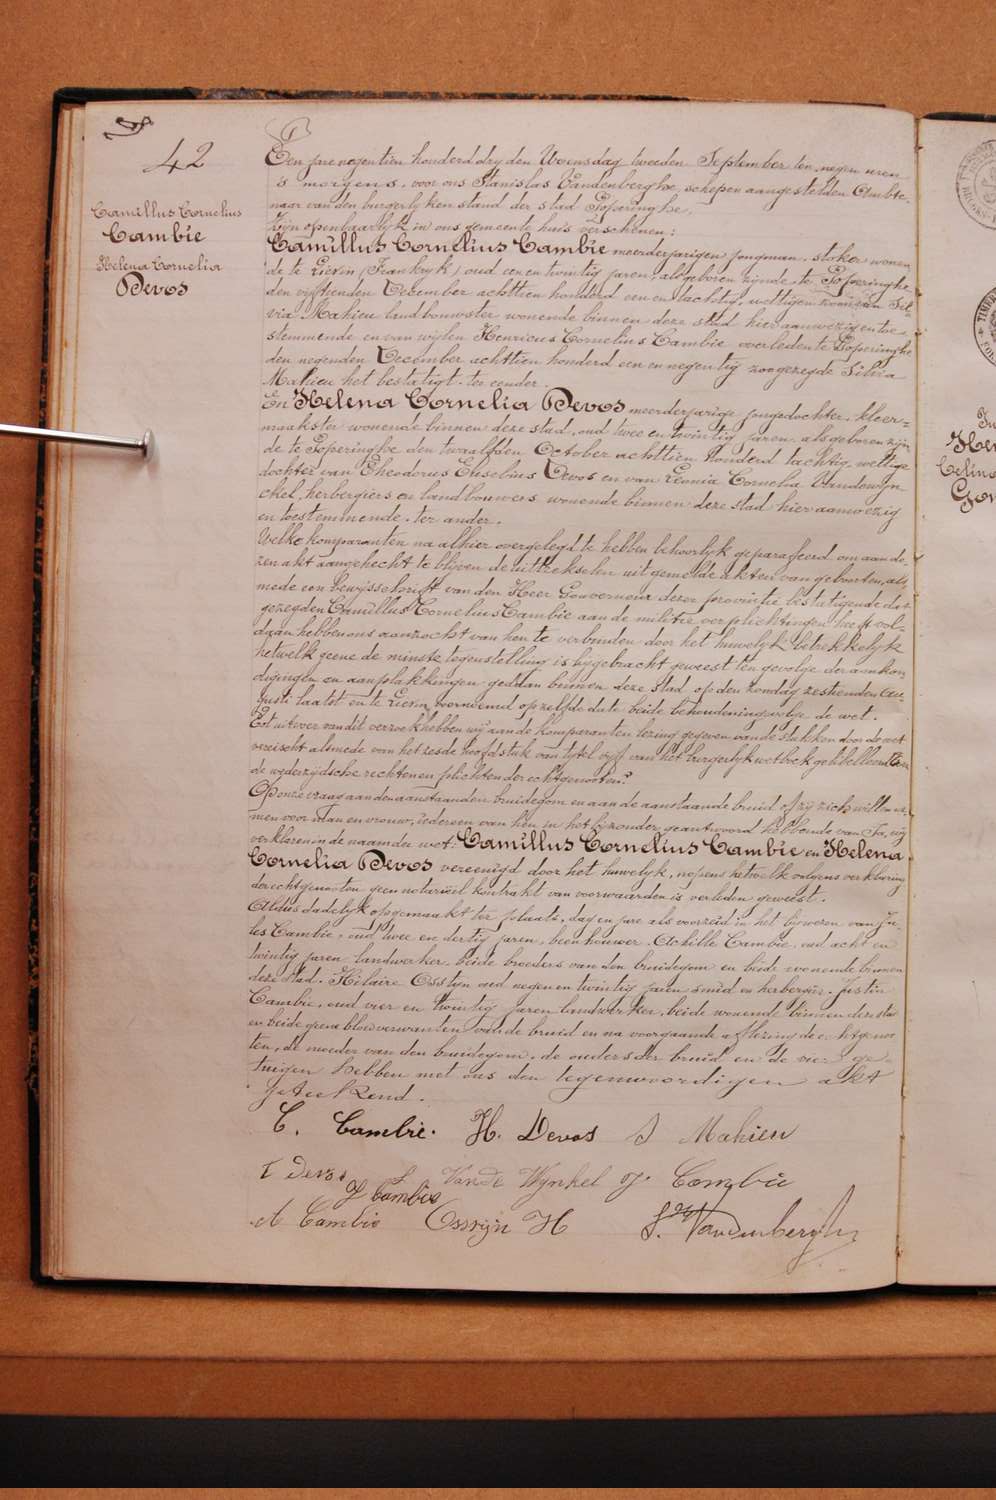 42
Camillus Cornelius
Cambie
Helena Cornelia
Devos
Een jare negentien honderd dry den Woensdag tweeden September ten negen uren
's morgens, voor ons Stanislas Vandenberghe, schepen aangestelden Ambte-
naar van den burgerlyken stand der stad Poperinghe,
Zijn openbaarlyk in ons gemeente huis verschenen:
Camillus Cornelius Cambie meerderjarigen jongman, stoker wonen
de te Lievin (Frankryk) oud een en twintig jaren, als geboren zijnde te Poperinghe
den vijftienden December achttien honderd een en tachtig, wettigen zoon van Sil-
via Mahieu landbouwster wonende binnen deze stad hier aanwezig en toe-
stemmende en van wijlen Henricus Cornelius Cambie overleden te Poperinghe
den negenden December achttien honderd een en negentig zoo gezegde Silvia
Mahieu het bestatigt. ter eender.
En Helena Cornelia Devos meerderjarige jongedochter, kleer-
maakster wonende binnen deze stad, oud twee en twintig jaren, als geboren zijn
de te Poperinghe den twaalfden October achttien honderd tachtig, wettige
dochter van Theodorus Eusebius Devos en van Leonia Cornelia Vandewyn
ckel, herbergiers en landbouwers wonende binnen deze stad hier aanwezig
en toestemmende. ter ander.
Welke komparanten na alhier overgelegd te hebben behoorlyk geparafeerd om aan de-
zen akt aangehecht te blyven de uittrekselen uit gemelde akten van geboorten, als
mede een bewysschrift van den Heer Gouverneur dezer provintie bestatigende dat
gezeyden Camillus Cornelius Cambie aan de militie verplichtingen heeft vol-
daan hebben ons aanzocht van hen te verbinden door het huwelyk betrekkelyk
hetwelk geene de minste tegenstelling is bijgebracht geweest ten gevolge der aankon
digingen en aanplakkingen gedaan binnen deze stad op den zondag zestienden Au-
gusti laatst en te Lievin voornoemd op zelfde date beide behoudeningevolge de wet.
Tot uitvoer van dit verzoek hebben wij aan de komparanten lezing gegeven van de stukken door de wet
vereischt alsmede van het zesde hoofdstuk van tytel vyf van het burgerlyk wetboek getitelleerd Over
de wederzijdsche rechten en plichten der echtgenooten.
Op onze vraag aan den aanstaanden bruidegom en aan de aanstaande bruid of zij zich willen ne-
men voor man en vrouw, iedereen van hen in het byzonder geantwoord hebbende van Ja, wij
verklaren in de naam der wet: Camillus Cornelius Cambie en Helena
Cornelia Devos vereenigd door het huwelyk, nopens hetwelk volgens verklaring
der echtgenooten geen notarieel kontrakt van voorwaarden is verleden geweest.
Aldus dadelyk opgemaakt ter plaats, dag en jare als voorzeid in het bijwezen van Ju-
les Cambie, oud twee en dertig jaren, beenhouwer, Achille Cambie, oud acht en
twintig jaren landwerker, beide broeders van den bruidegom en beide wonende binnen
deze stad. Hilaire Osstyn oud negen en twintig jaren smid en herbergier. Justin
Cambie, oud vier en twintig jaren landwerker, beide wonende binnen deze sta
en beide geene bloedverwanten van de bruid en na voorgaande aflezing de echtgenoo
ten, de moeder van den bruidegom, de ouders der bruid en de vier ge-
tuigen hebben met ons den tegenwoordigen akt
geteekend.
C. Cambie. H. Devos S Mahieu
T Devos L Vande Wynkel J. Cambie
J Cambie
A Cambie Osstyn H S. Vandenberghe